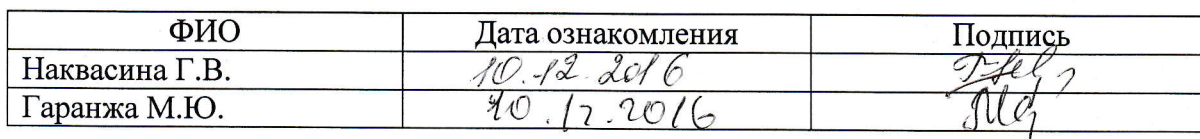 ФИО Дата ознакомления Подпись
Наквасина Г.В. 10.12.2016
Гаранжа М.Ю. 10.12.2016